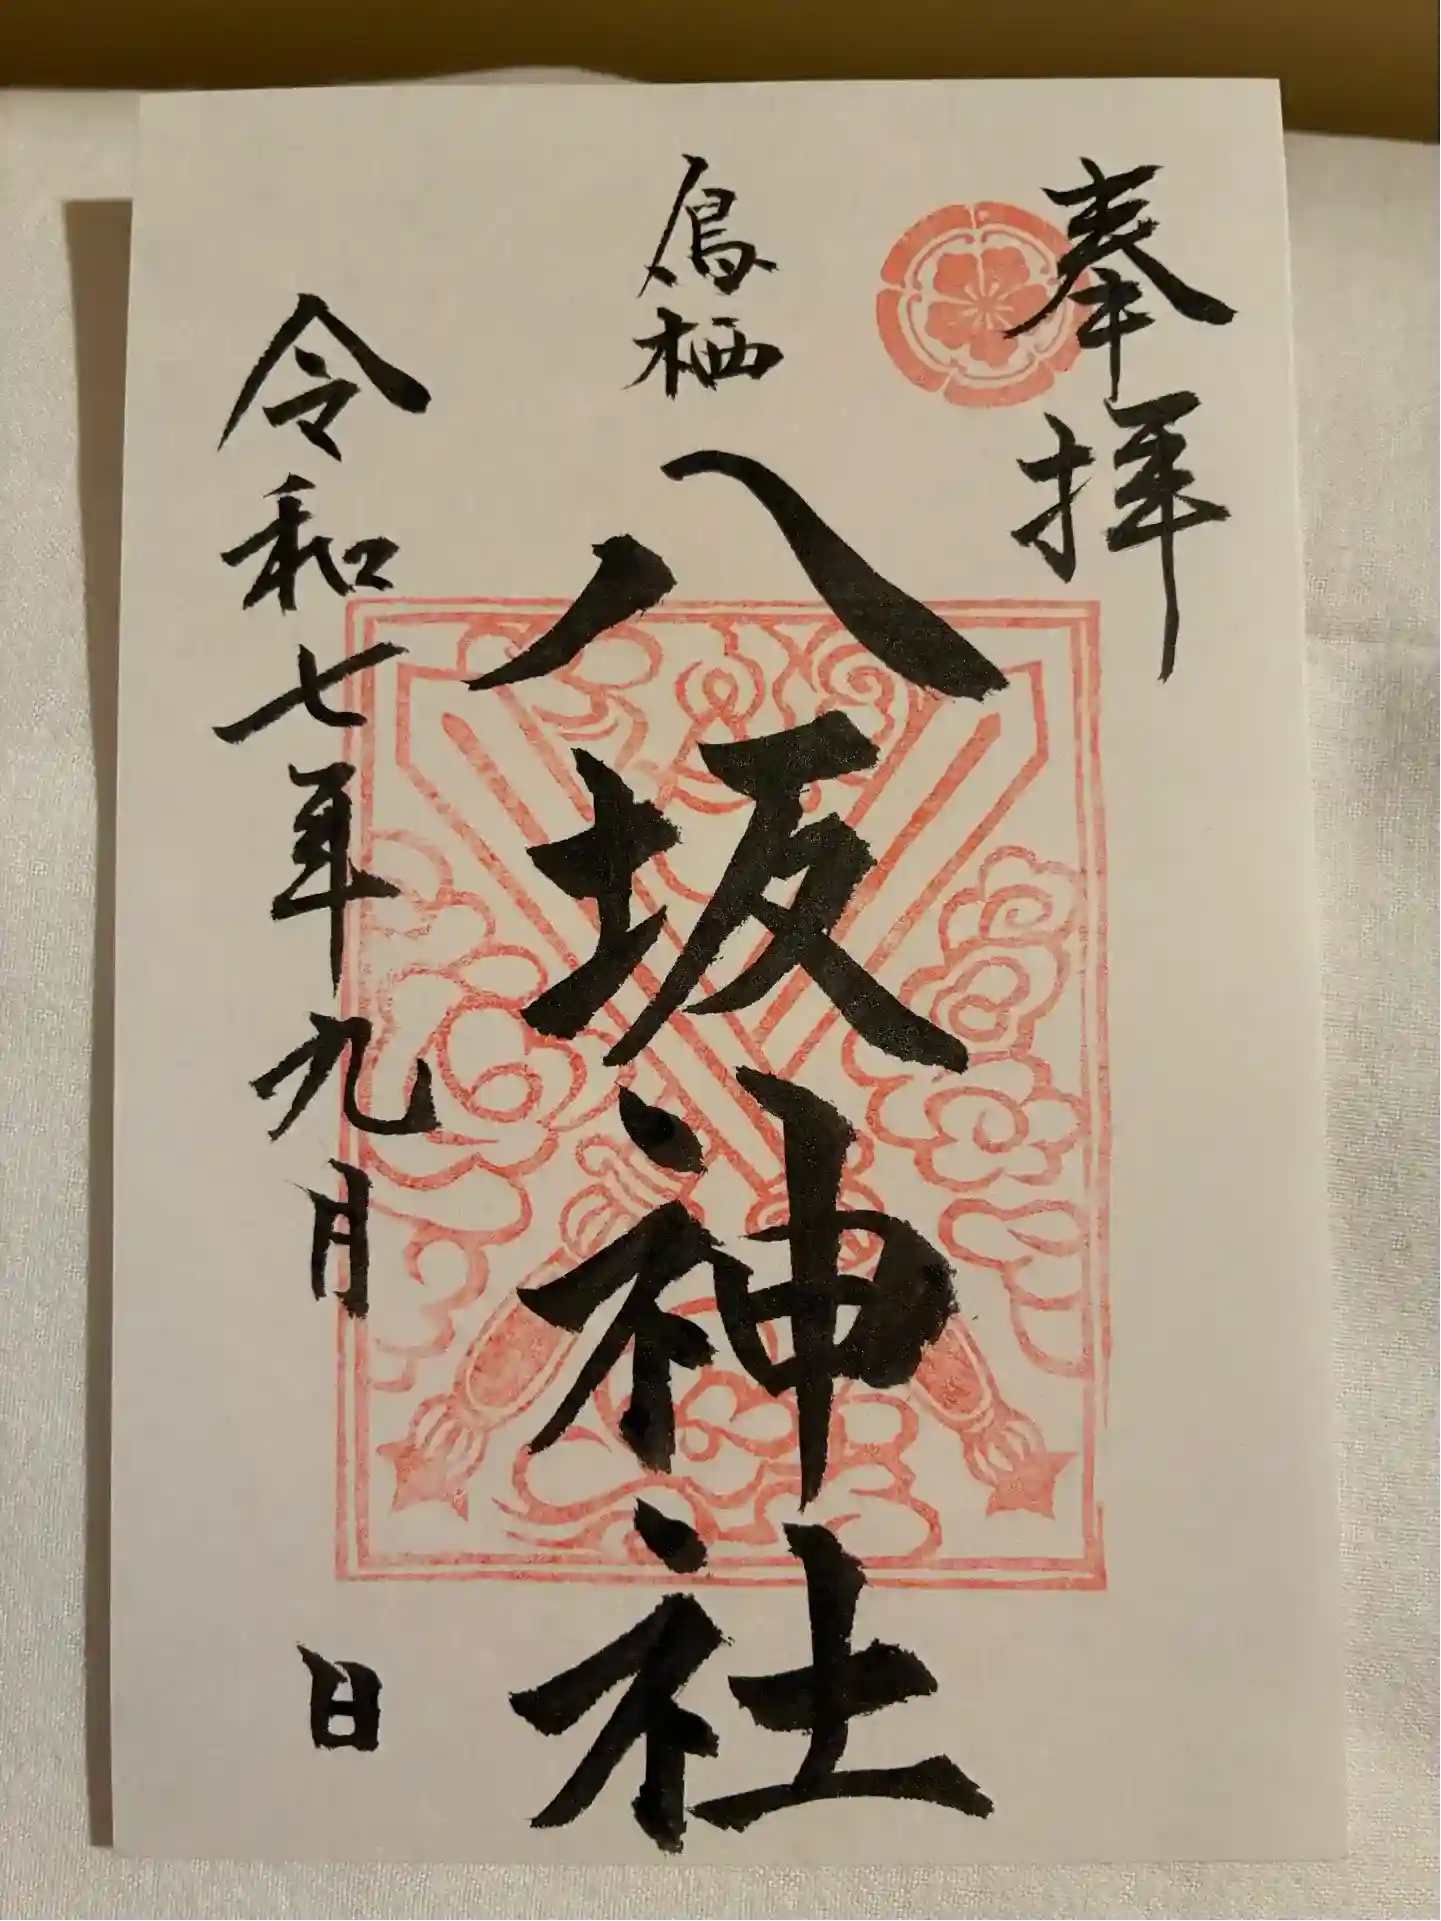 奉拝
鳥栖
八坂神社
令和七年九月 日